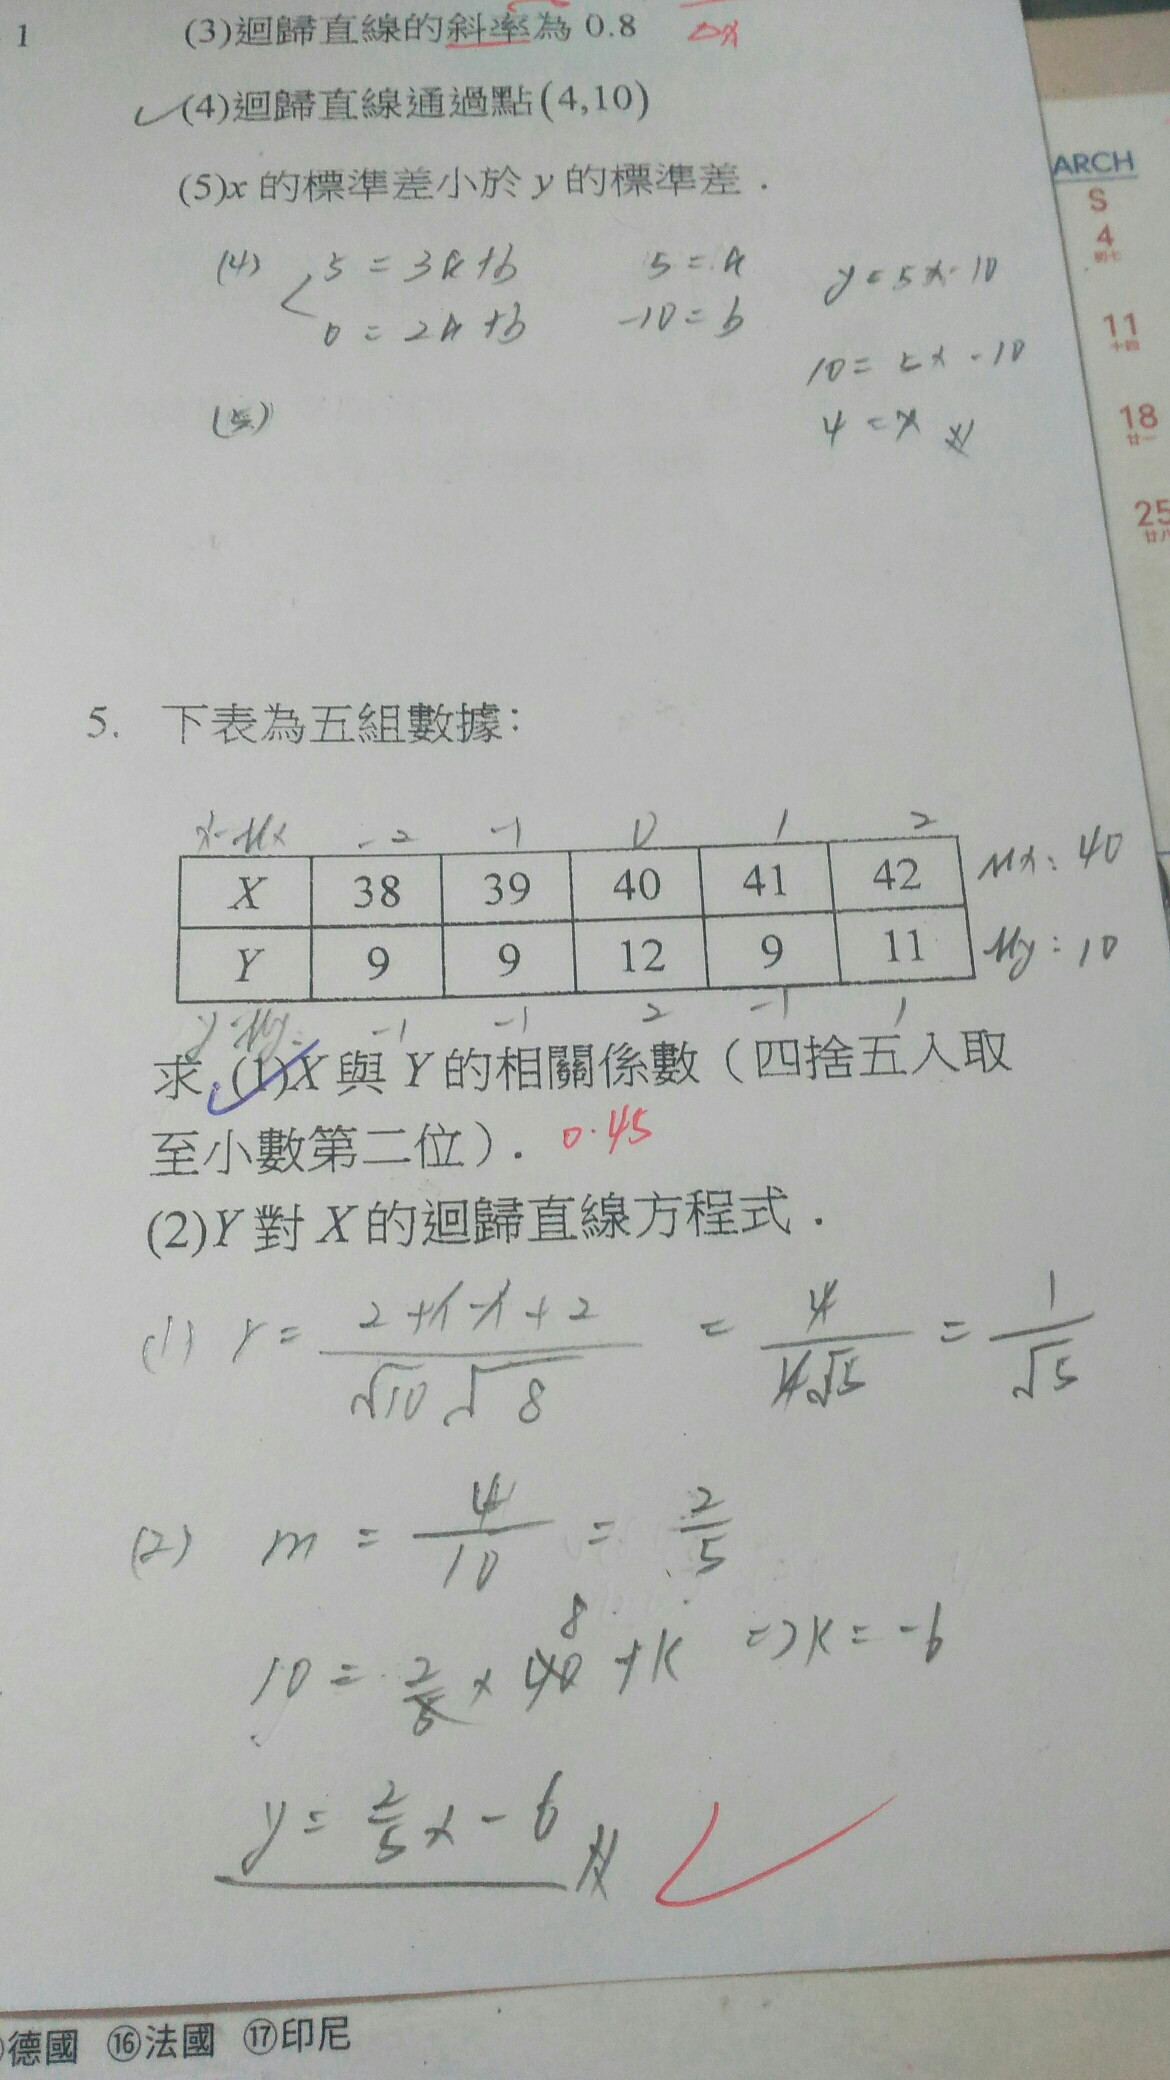 1
(3)迴歸直線的斜率為 0.8
Δx
(4)迴歸直線通過點(4,10)
(5)x 的標準差小於 y 的標準差．
ARCH
S
4
11
十四
18
廿一
25
廿八
(4) 5 = 3a+b 5 = a y = 5x-10
0 = 2a+b -10 = b
10 = 5x-10
(5) 4 = x
5. 下表為五組數據：
x-μx -2 -1 0 1 2
X 38 39 40 41 42 μx: 40
Y 9 9 12 9 11 μy: 10
y-μy -1 -1 2 -1 1
求 (1)X 與 Y 的相關係數（四捨五入取
至小數第二位）． 0.45
(2)Y 對 X 的迴歸直線方程式．
(1) r = (2+1-1+2)/(√10 √8) = 4/(4√5) = 1/√5
(2) m = 4/10 = 2/5
8
10 = 2/5 × 40 + k => k = -6
y = 2/5 x - 6
德國 ⑯法國 ⑰印尼